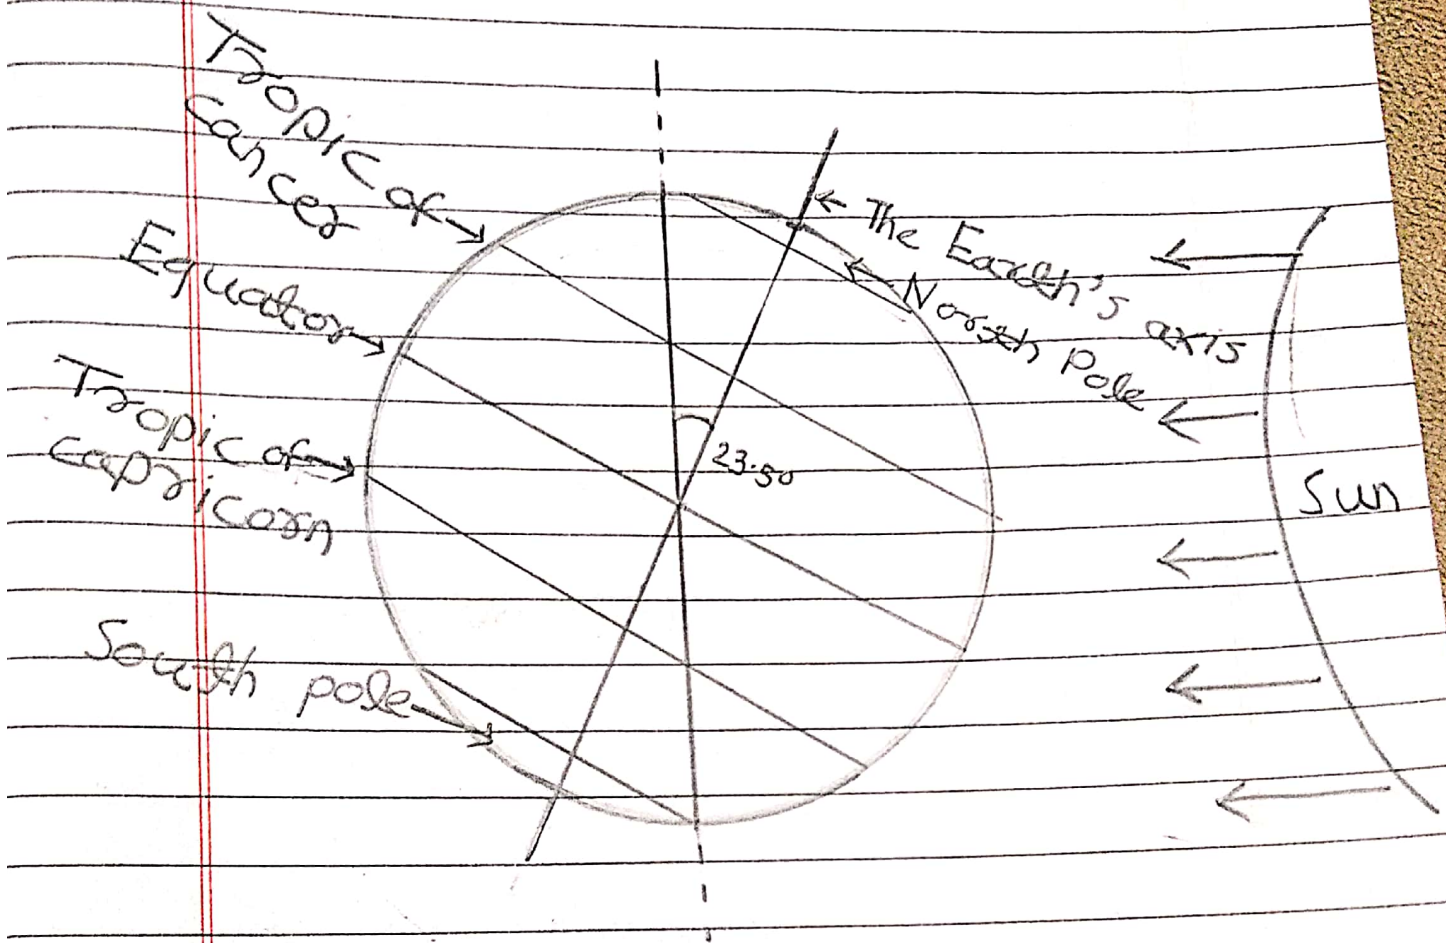 Tropic of
Cancer
Equator
Tropic of
capricorn
South pole
The Earth's axis
North Pole
23.50
Sun